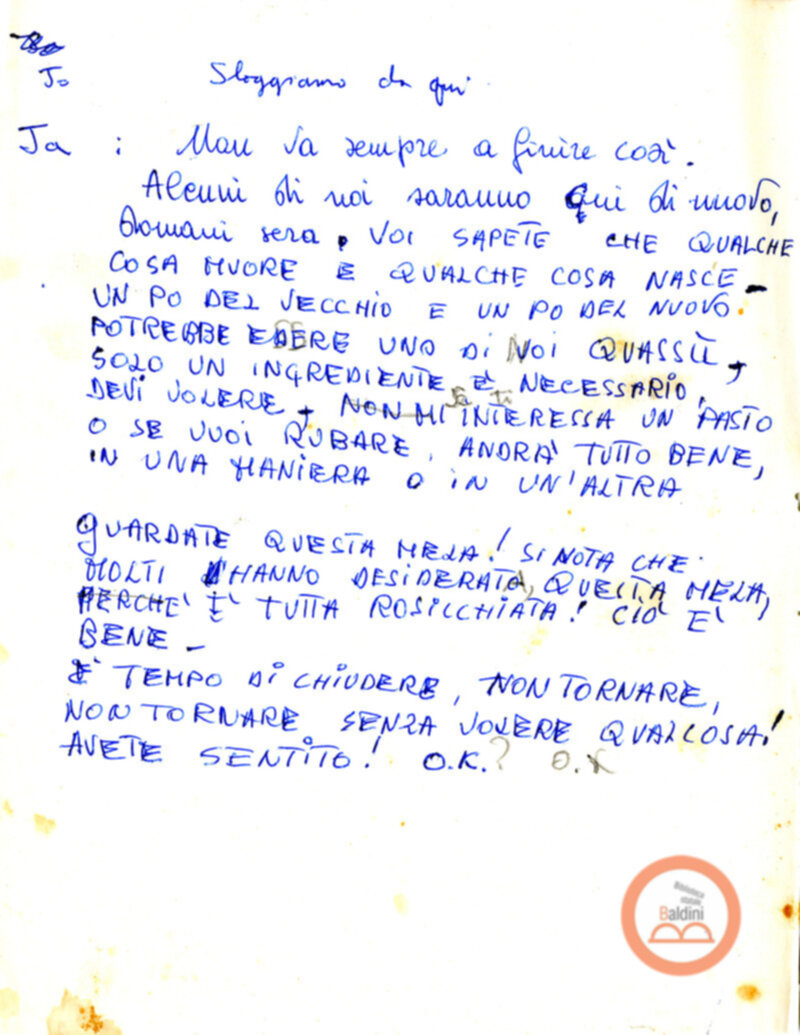 Jo Sloggiamo da qui
Ja : Man va sempre a finire così.
Alcuni di noi saranno qui di nuovo,
domani sera. VOI SAPETE CHE QUALCHE
COSA MUORE E QUALCHE COSA NASCE -
UN PO DEL VECCHIO E UN PO DEL NUOVO.
POTREBBE ESSERE UNO DI NOI QUASSÙ,
SOLO UN INGREDIENTE E' NECESSARIO,
DEVI VOLERE, NON MI Se ti INTERESSA UN PASTO
O SE VUOI RUBARE, ANDRA' TUTTO BENE,
IN UNA MANIERA O IN UN'ALTRA
GUARDATE QUESTA MELA! SI NOTA CHE
MOLTI HANNO DESIDERATO, QUESTA MELA,
PERCHE' E' TUTTA ROSICCHIATA! CIO' E'
BENE -
E' TEMPO DI CHIUDERE, NON TORNARE,
NON TORNARE SENZA VOLERE QUALCOSA!
AVETE SENTITO! O.K.? O.K
Biblioteca
statale
Baldini